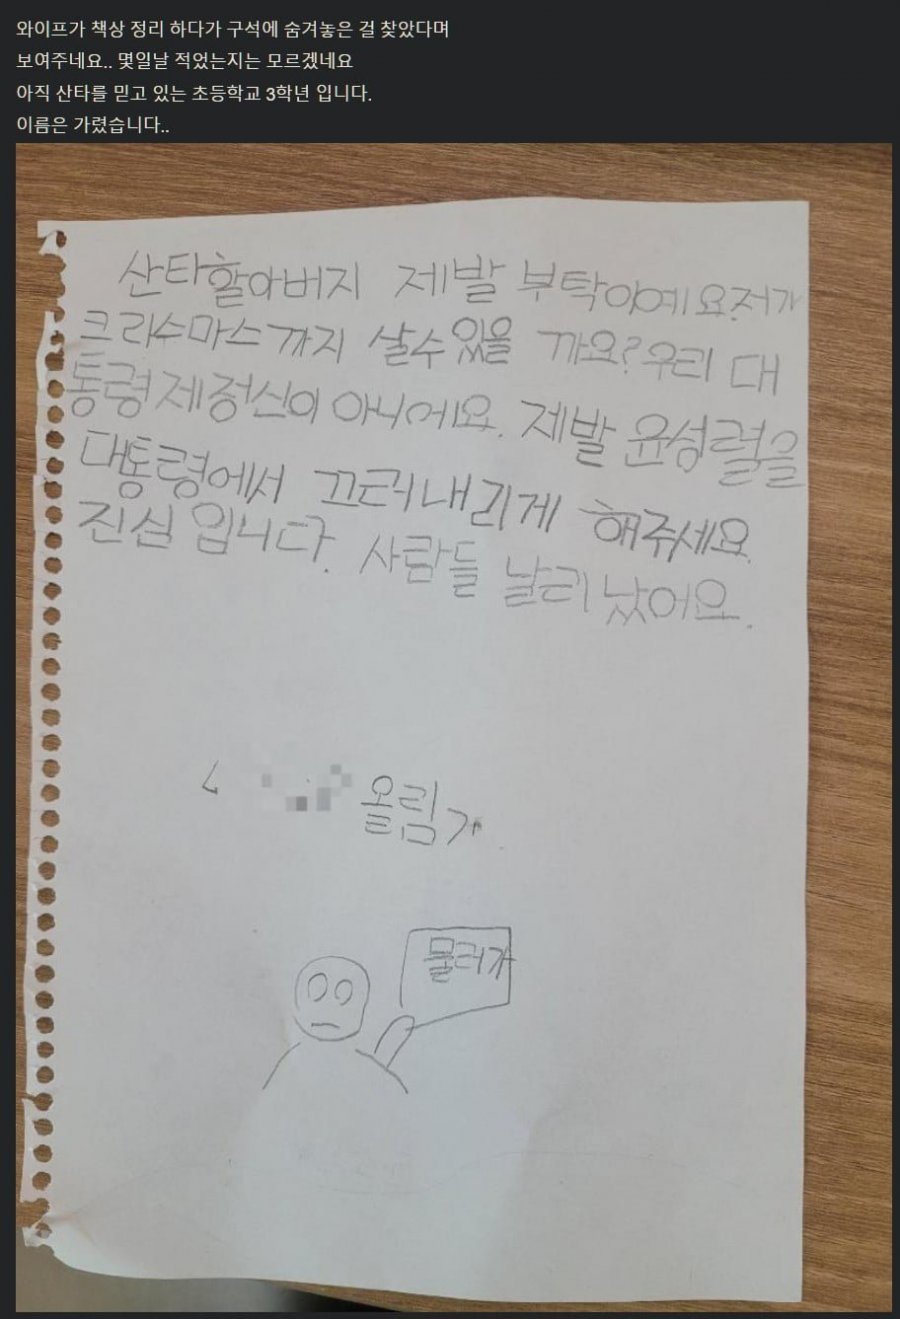 와이프가 책상 정리 하다가 구석에 숨겨놓은 걸 찾았다며
보여주네요.. 몇일날 적었는지는 모르겠네요
아직 산타를 믿고 있는 초등학교 3학년 입니다.
이름은 가렸습니다..
산타할아버지 제발 부탁이예요.저가
크리스마스까지 살수있을 까요?우리 대
통령제정신이 아니에요. 제발 윤성렬을
대통령에서 끄러내리게 해주세요.
진심입니다. 사람들 날리났어요.
올림가
물러가